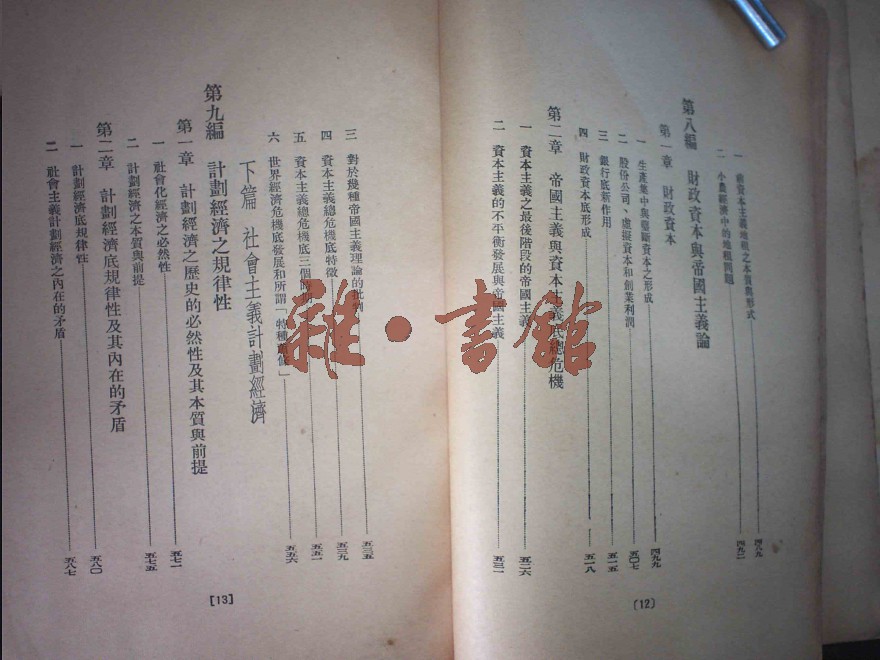 一 前資本主義地租之本質與形式 四八九
二 小農經濟中的地租問題 四九二
第八編 財政資本與帝國主義論
第一章 財政資本
一 生產集中與壟斷資本之形成 四九九
二 股份公司、虛擬資本和創業利潤 五〇七
三 銀行底新作用 五一五
四 財政資本底形成 五一八
第二章 帝國主義與資本主義底總危機
一 資本主義之最後階段的帝國主義 五二六
二 資本主義的不平衡發展與帝國主義 五三一
(12)
三 對於幾種帝國主義理論的批判 五三五
四 資本主義總危機底特徵 五三九
五 資本主義總危機底三個時期 五五一
六 世界經濟危機底發展和所謂「特種蕭條」 五五六
下篇 社會主義計劃經濟
第九編 計劃經濟之規律性
第一章 計劃經濟之歷史的必然性及其本質與前提
一 社會化經濟之必然性 五七一
二 計劃經濟之本質與前提 五七五
第二章 計劃經濟底規律性及其內在的矛盾
一 計劃經濟底規律性 五八〇
二 社會主義計劃經濟之內在的矛盾 五八七
[13]
雜·書館